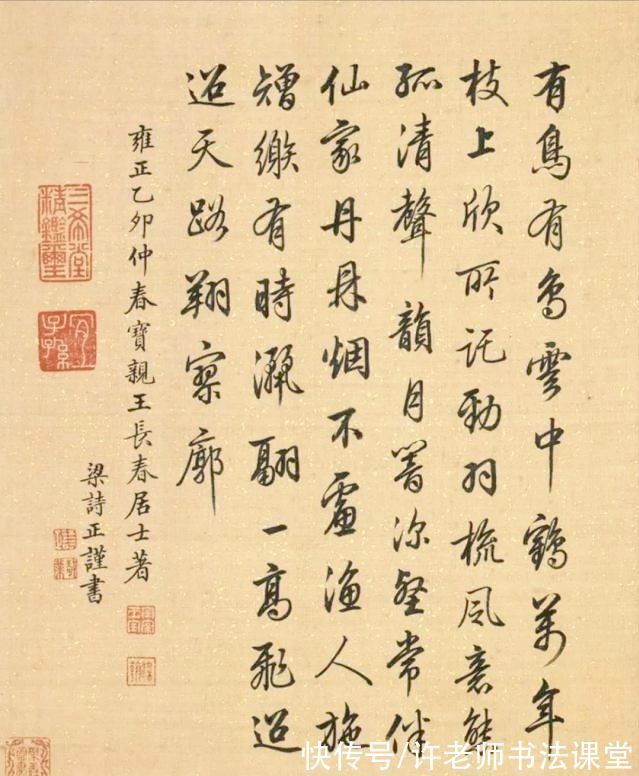 有鳥有鳥雲中鶴萬年
枝上欣所託勁羽梳風意態
孤清聲韻月著深壑常伴
仙家丹鼎烟不慮漁人施
矰繳有時灑翮一高飛迢
迢天路翔寥廓
雍正乙卯仲春寶親王長春居士著
梁詩正謹書
三希堂精鑑璽
宜子孫
快传号/许老师书法课堂